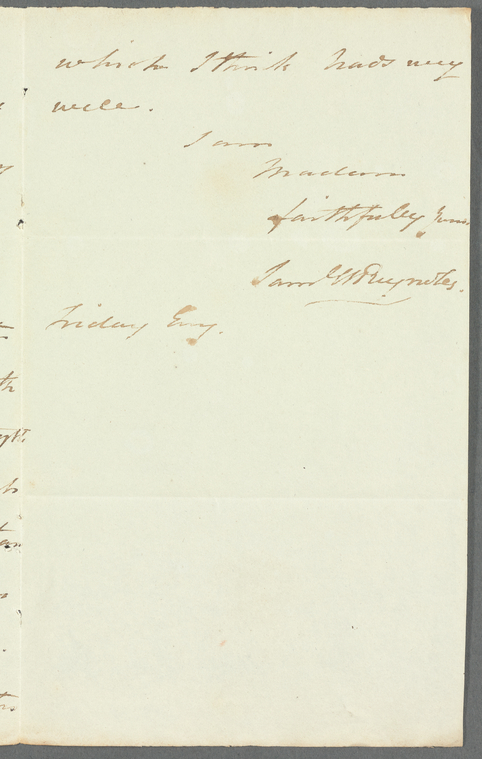 which I think reads very
well.
I am
Madam
faithfully Yours
Saml W Reynolds.
Friday Evg.
th